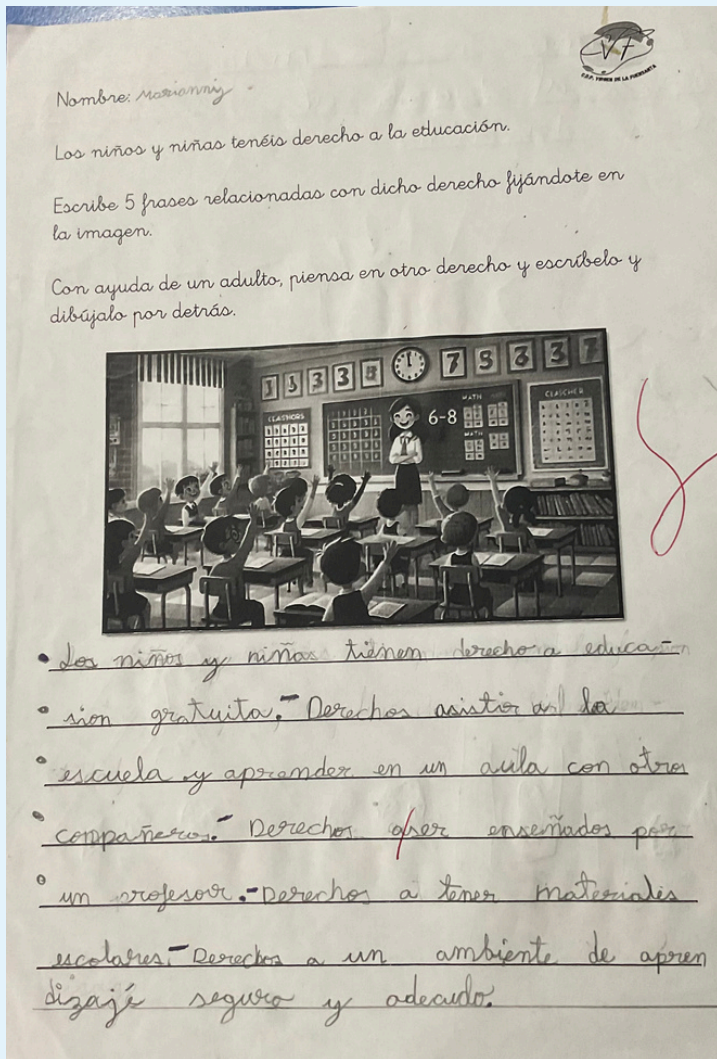 C.E.P. VIRGEN DE LA FUENSANTA
Nombre: Marianny
Los niños y niñas tenéis derecho a la educación.
Escribe 5 frases relacionadas con dicho derecho fijándote en
la imagen.
Con ayuda de un adulto, piensa en otro derecho y escríbelo y
dibújalo por detrás.
1 3 3 3 8 7 5 8 3 7
CLASTHORS
6-8
MATH
MATH
CLASCHER
• Los niños y niñas tienen derecho a educa-
• sion gratuita.- Derechos asistir a la
• escuela y aprender en un aula con otros
• compañeros.- Derechos a ser enseñados por
• un profesor.- Derechos a tener materiales
escolares.- Derechos a un ambiente de apren
dizaje seguro y adecudo.